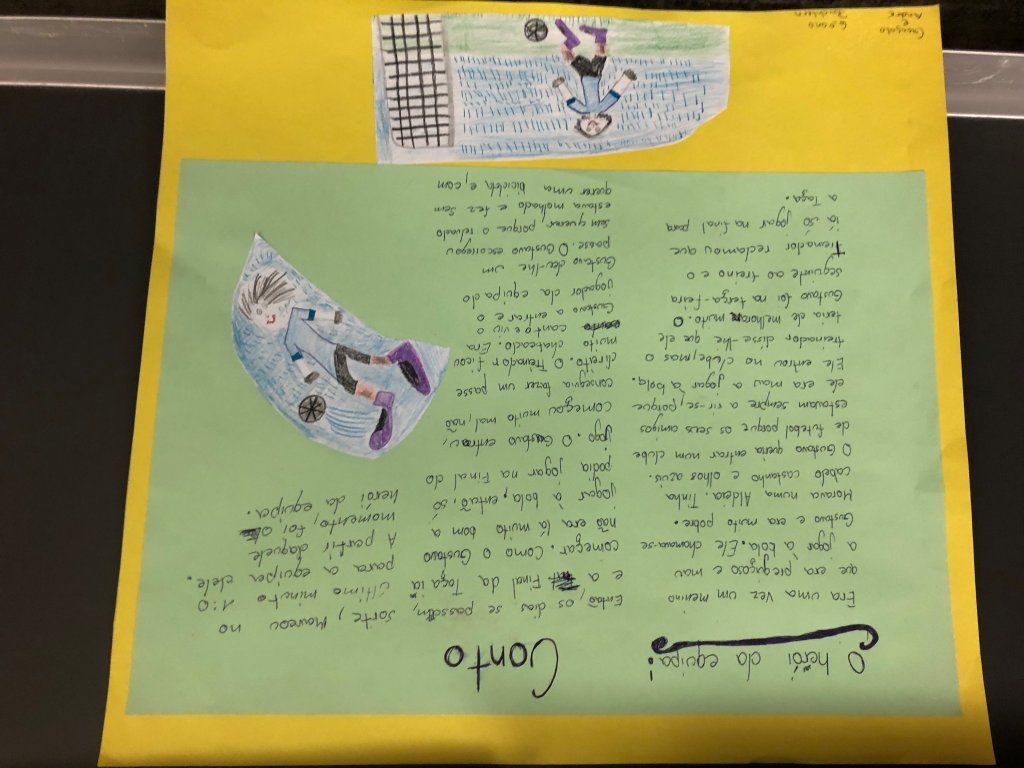 O herói da equipa!
Conto
Era uma vez um menino
que era preguiçoso e mau
a jogar à bola. Ele chamava-se
Gustavo e era muito pobre.
Morava numa Aldeia. Tinha
cabelo castanho e olhos azuis.
O Gustavo queria entrar num clube
de futebol porque os seus amigos
estavam sempre a rir-se, porque
ele era mau a jogar à bola.
Ele entrou no clube, mas o
treinador disse-lhe que ele
teria de melhorar muito. O
Gustavo foi na terça-feira
seguinte ao treino e o
Treinador reclamou que
ia só jogar na final para
a Taça.
Então, os dias se
e a Final da Taça ia
começar. Como o Gustavo
não era lá muito bom a
jogar à bola, então, só
podia jogar na Final do
jogo. O Gustavo entrou,
começou muito mal, não
conseguia fazer um passe
direito. O Treinador ficou
muito chateado. Era
canto e viu o
Gustavo a entrar e o
jogador da equipa do
Gustavo deu-lhe um
passe. O Gustavo escorregou
sem querer porque o relvado
estava molhado e fez sem
querer uma bicicleta e, com
sorte, marcou no
último minuto 1:0
para a equipa dele.
A partir daquele
momento, foi
herói da equipa.
e
André